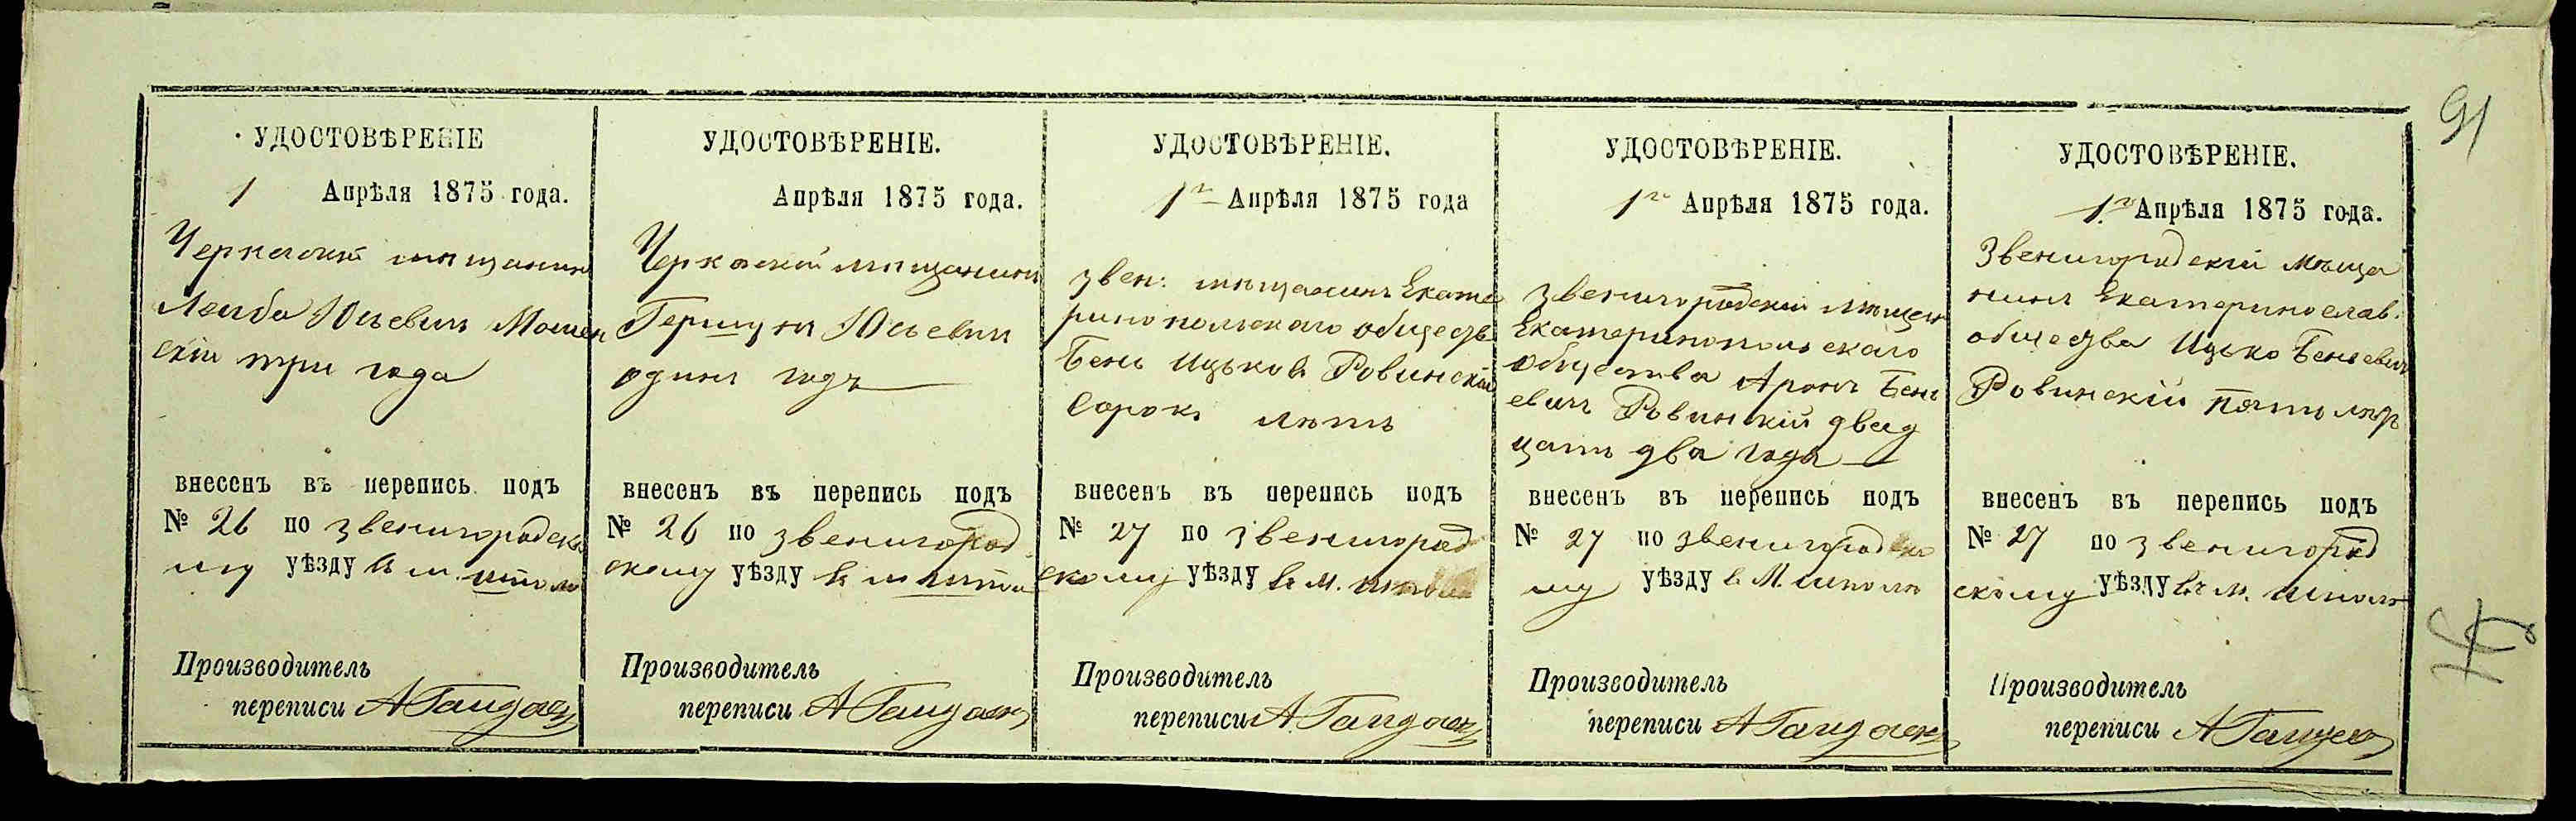 91
УДОСТОВѢРЕНІЕ
1 Апрѣля 1875 года.
Черкаский мѣщанинъ
Лейба Юсьевич Мошен
скій три года
внесенъ въ перепись подъ
№ 26 по звенигородско
му уѣзду въ м. Шполѣ
Производитель
переписи
УДОСТОВѢРЕНІЕ.
Апрѣля 1875 года.
Черкаской мѣщанинъ
Гершун Юсьевич
один годъ
внесенъ въ перепись подъ
№ 26 по звенигород
скому уѣзду в м Шпол
Производитель
переписи
УДОСТОВѢРЕНІЕ.
1го Апрѣля 1875 года
звен: мѣщанинъ Екате
ринопольскаго обществ
Бень Ицьков Ровинскій
сорокъ лѣтъ
внесенъ въ перепись подъ
№ 27 по звенигород
скому уѣзду въ м. Шполѣ
Производитель
переписи
УДОСТОВѢРЕНІЕ.
1го Апрѣля 1875 года.
звенигородский мѣщан
Екатеринопольскаго
общества Аронъ Бень
евичъ Ровинский двад
цать два года
внесенъ въ перепись подъ
№ 27 по звенигородско
му уѣзду в М. Шполѣ
Производитель
переписи
УДОСТОВѢРЕНІЕ.
1го Апрѣля 1875 года.
Звенигородскій мѣща
нинъ Екатеринослав.
общества Ицько Беньевичъ
Ровинскій пять лѣтъ
внесенъ въ перепись подъ
№ 27 по звенигород
скому уѣзду въ м. Шполѣ
Производитель
переписи